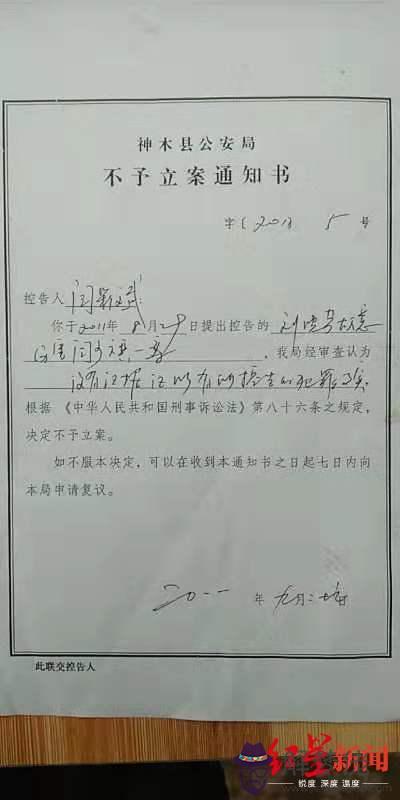 神木县公安局
不予立案通知书
字〔2011 5 号
控告人
你于2011年8月29日提出控告的
一案，我局经审查认为
没有证据证明有所控告的犯罪事实
根据《中华人民共和国刑事诉讼法》第八十六条之规定，
决定不予立案。
如不服本决定，可以在收到本通知书之日起七日内向
本局申请复议。
二〇一一年九月二
此联交控告人
红星新闻
锐度 深度 温度